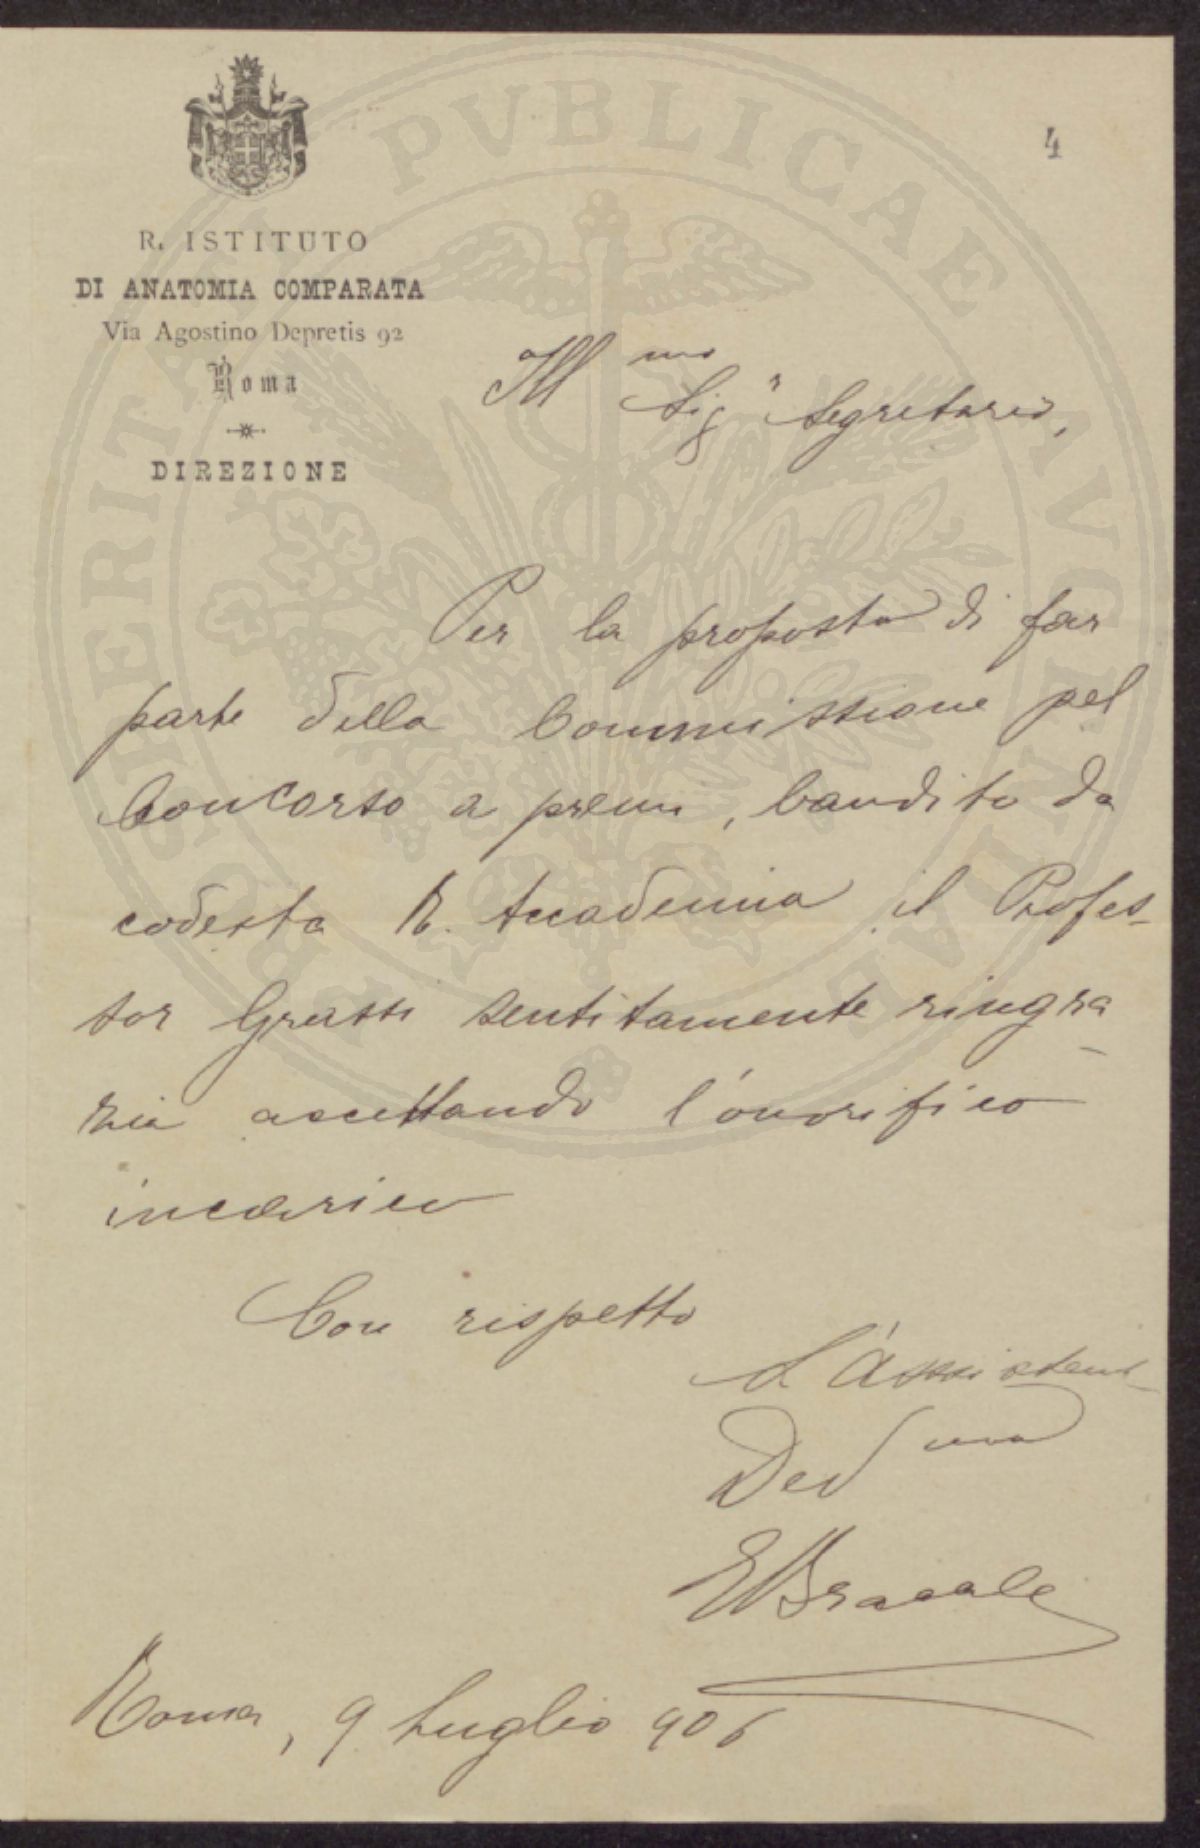 4
R. ISTITUTO
DI ANATOMIA COMPARATA
Via Agostino Depretis 92
Roma
DIREZIONE
Ill mo Sig r Segretario,
Per la proposta di far
parte della Commissione pel
Concorso a premi, bandito da
codesta R. Accademia il Profes-
sor Grassi sentitamente ringra-
zia accettando l'onorifico
incarico
Con rispetto
L'Assistent
Dev mo
E Bracale
Roma, 9 Luglio 906
PROSPERITATI PVBLICAE AVGENDAE